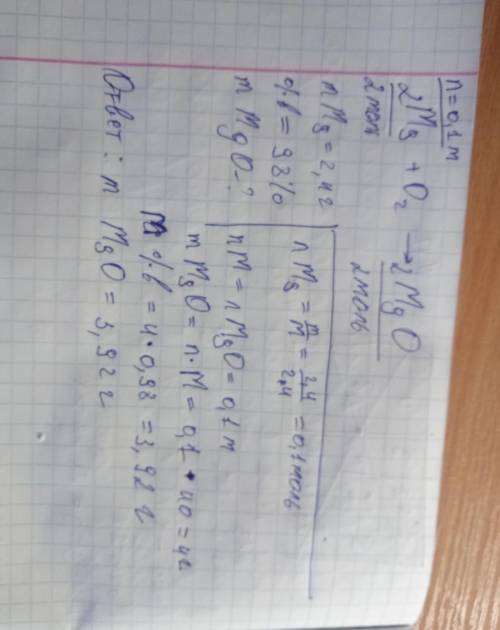 n=0,1м
2Mg + O2 → 2MgO
2моль 2моль
mMg = 2,4г
%в = 98%
m MgO-?
nMg = m/M = 2,4/2,4 = 0,1моль
nM = nMgO = 0,1м
mMgO = n·M = 0,1·40 = 4г
m %в = 4·0,98 = 3,92 г
Ответ: m MgO = 3,92 г